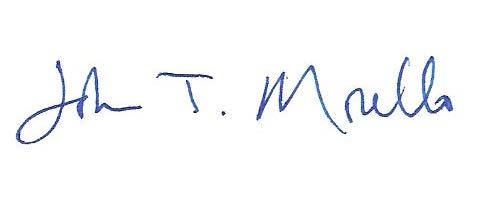 John T. Morello